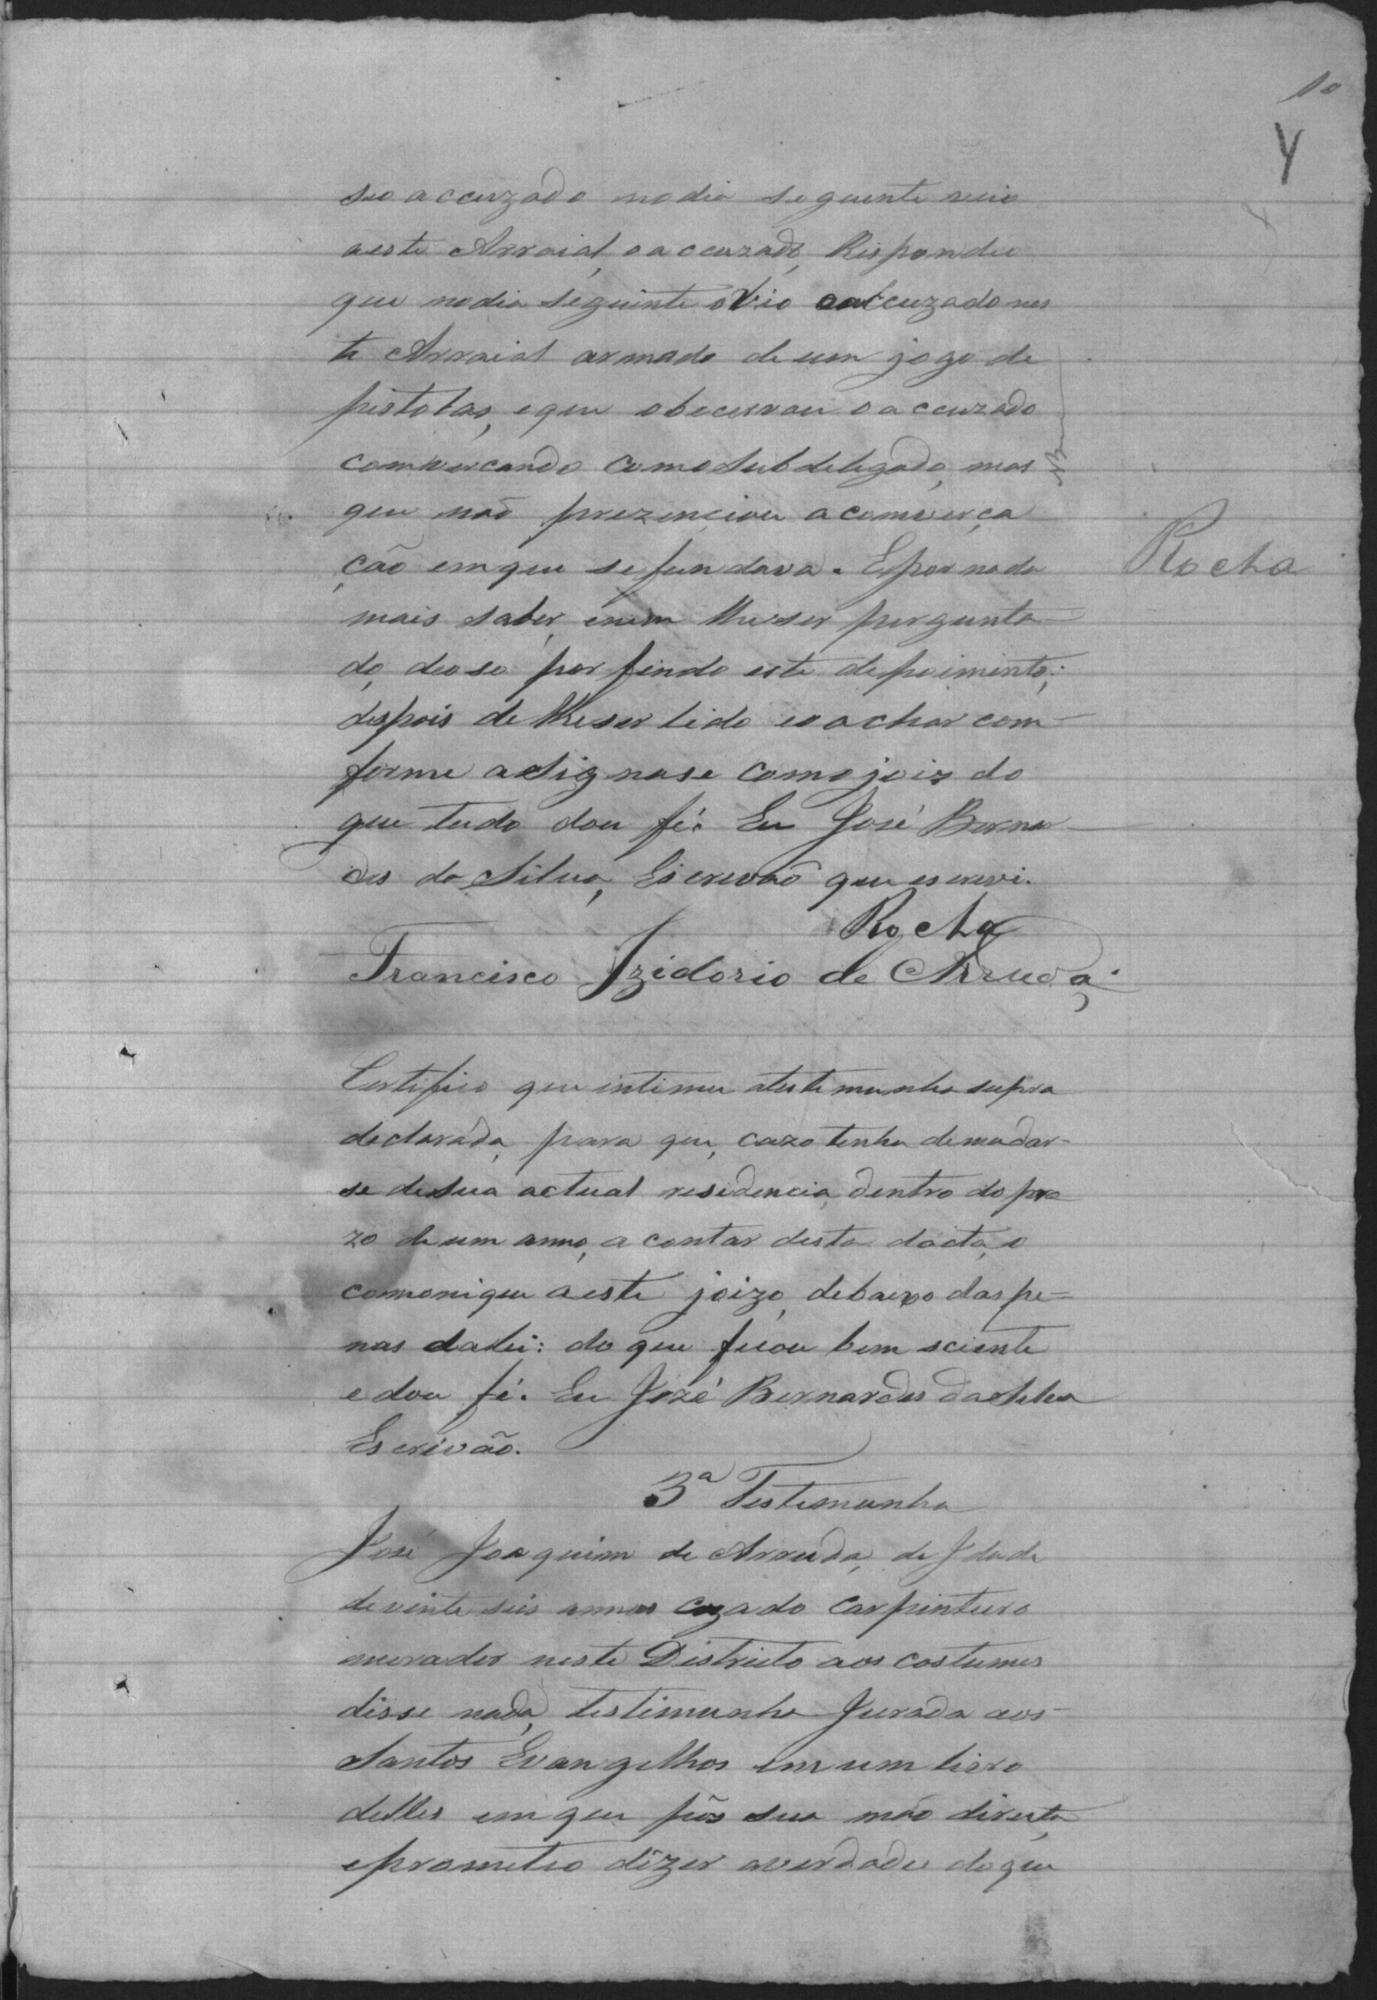 10
Y
seo accuzado no dia seguente veio
aeste Arraial, oaccuzado, Respondeo
que nodia seguinte ovio oaccuzado nes
te Arraial armado de um jogo de
pistolas, eque obecervou oaccuzado
comvercando comoSubdelegado, mas
que não prezenciou acomverça
ção emque sefundava. Epornada
mais saber, enem lheser pergunta-
do, deose por findo este depoimento;
depois de lheser lido eoachar com-
forme asignase comojoiz do
que tudo dou fé. Eu José Bernar-
des da Silva, Escrivão que escrevi.
Rocha
Rocha
Francisco Izidorio de Arruda
Certifico que intimei atestemunha supra
declarada, para que, cazo tenha demudar-
se desua actual residencia, dentro do pra
zo de um anno, a contar desta dacta, o
comonique aeste joizo, debaixo das pe-
nas dalei: do que ficou bem sciente
e dou fé. Eu José Bernardes daSilva
Escrivão.
3ª Testemunha
José Joaquim de Arruda, de Idade
devinte seis annos cazado carpinteiro
morador neste Districto aos costumes
disse nada, testimunha Jurada aos
Santos Evangelhos em um livro
delles em que pôs sua mão direita,
eprometeo dizer averdade doque